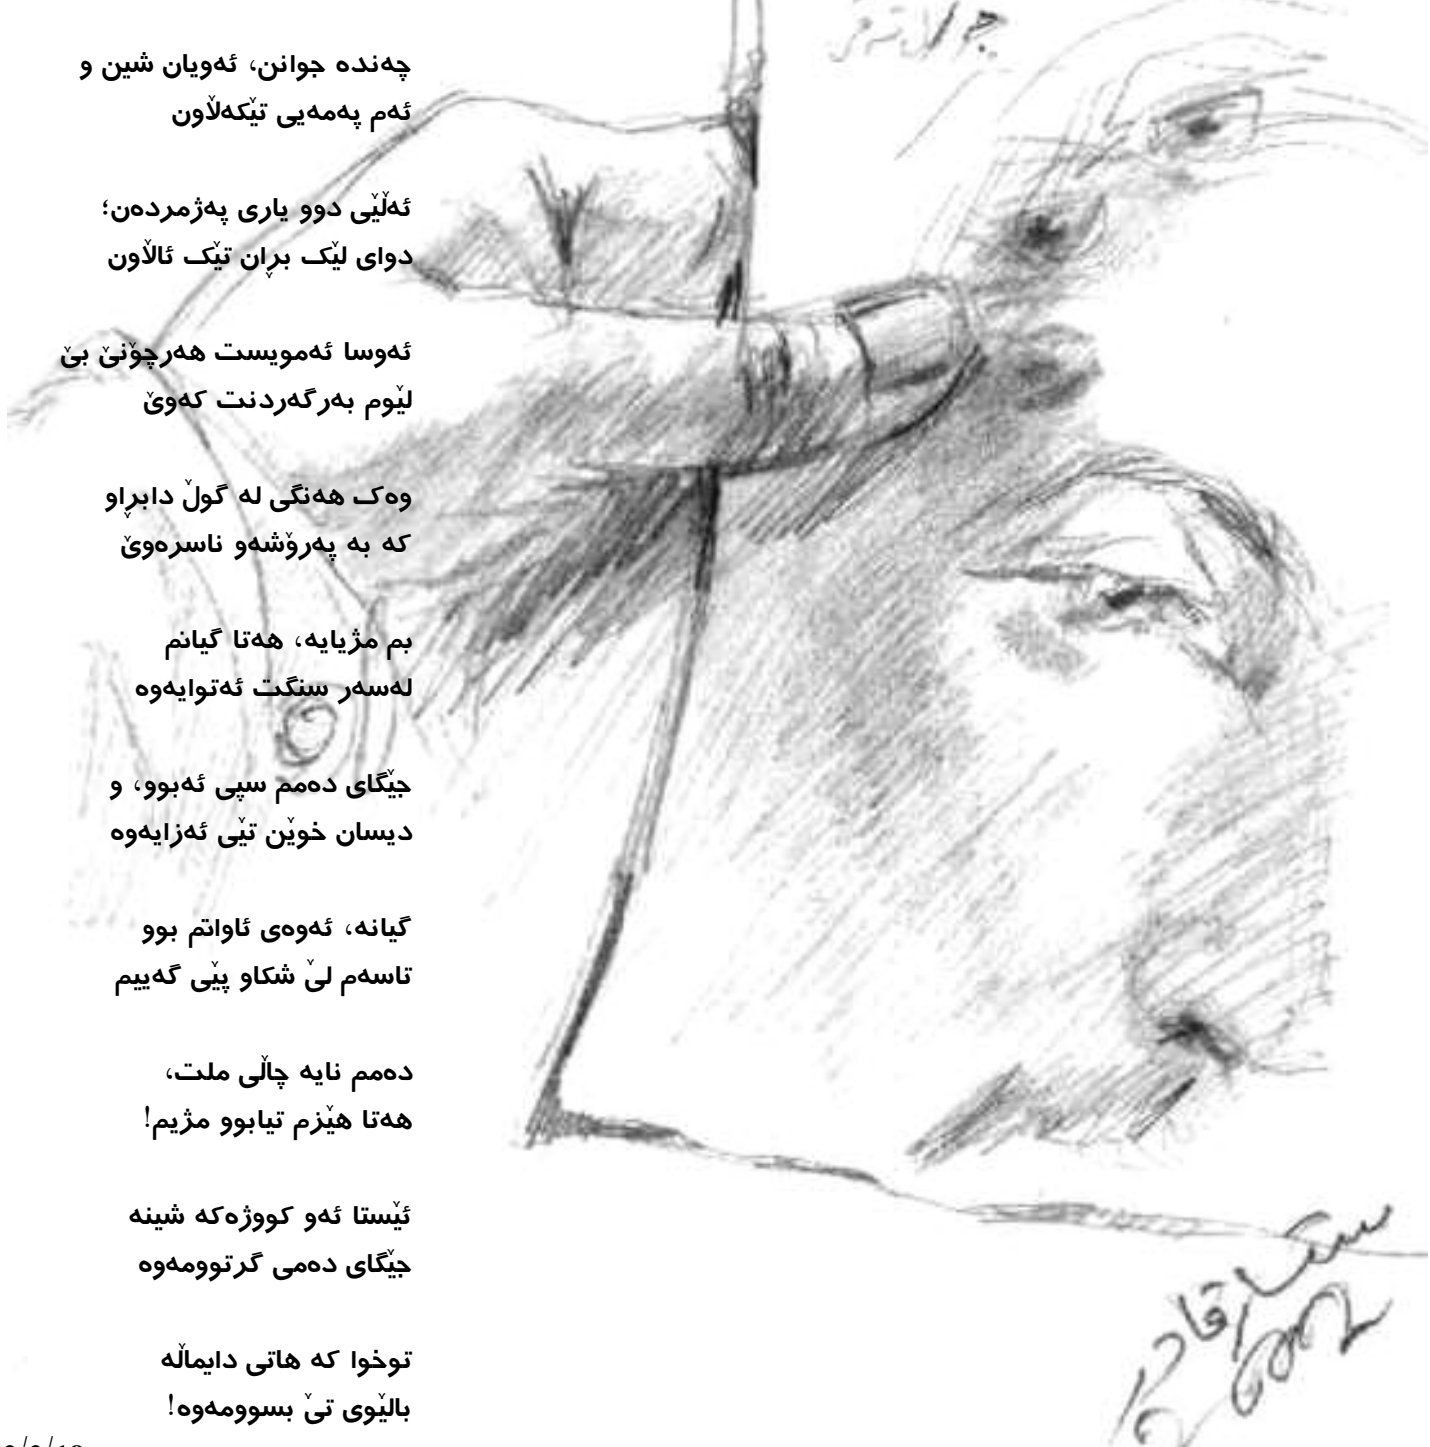 چەندە جوانن، ئەویان شین و
ئەم پەمەیی تێکەڵاون
ئەڵێی دوو یاری پەژمردەن؛
دوای لێک بڕان تێک ئاڵاون
ئەوسا ئەمویست هەرچۆنێ بێ
لێوم بەرگەردنت کەوێ
وەک هەنگی لە گوڵ دابڕاو
کە بە پەرۆشەو ناسرەوێ
بم مژیایە، هەتا گیانم
لەسەر سنگت ئەتوایەوە
جێگای دەمم سپی ئەبوو، و
دیسان خوێن تێی ئەزایەوە
گیانە، ئەوەی ئاواتم بوو
تاسەم لێ شکاو پێی گەییم
دەمم نایە چاڵی ملت،
هەتا هێزم تیابوو مژیم!
ئێستا ئەو کووژەکە شینە
جێگای دەمی گرتوومەوە
توخوا کە هاتی دایماڵە
بالێوی تێ بسوومەوە!